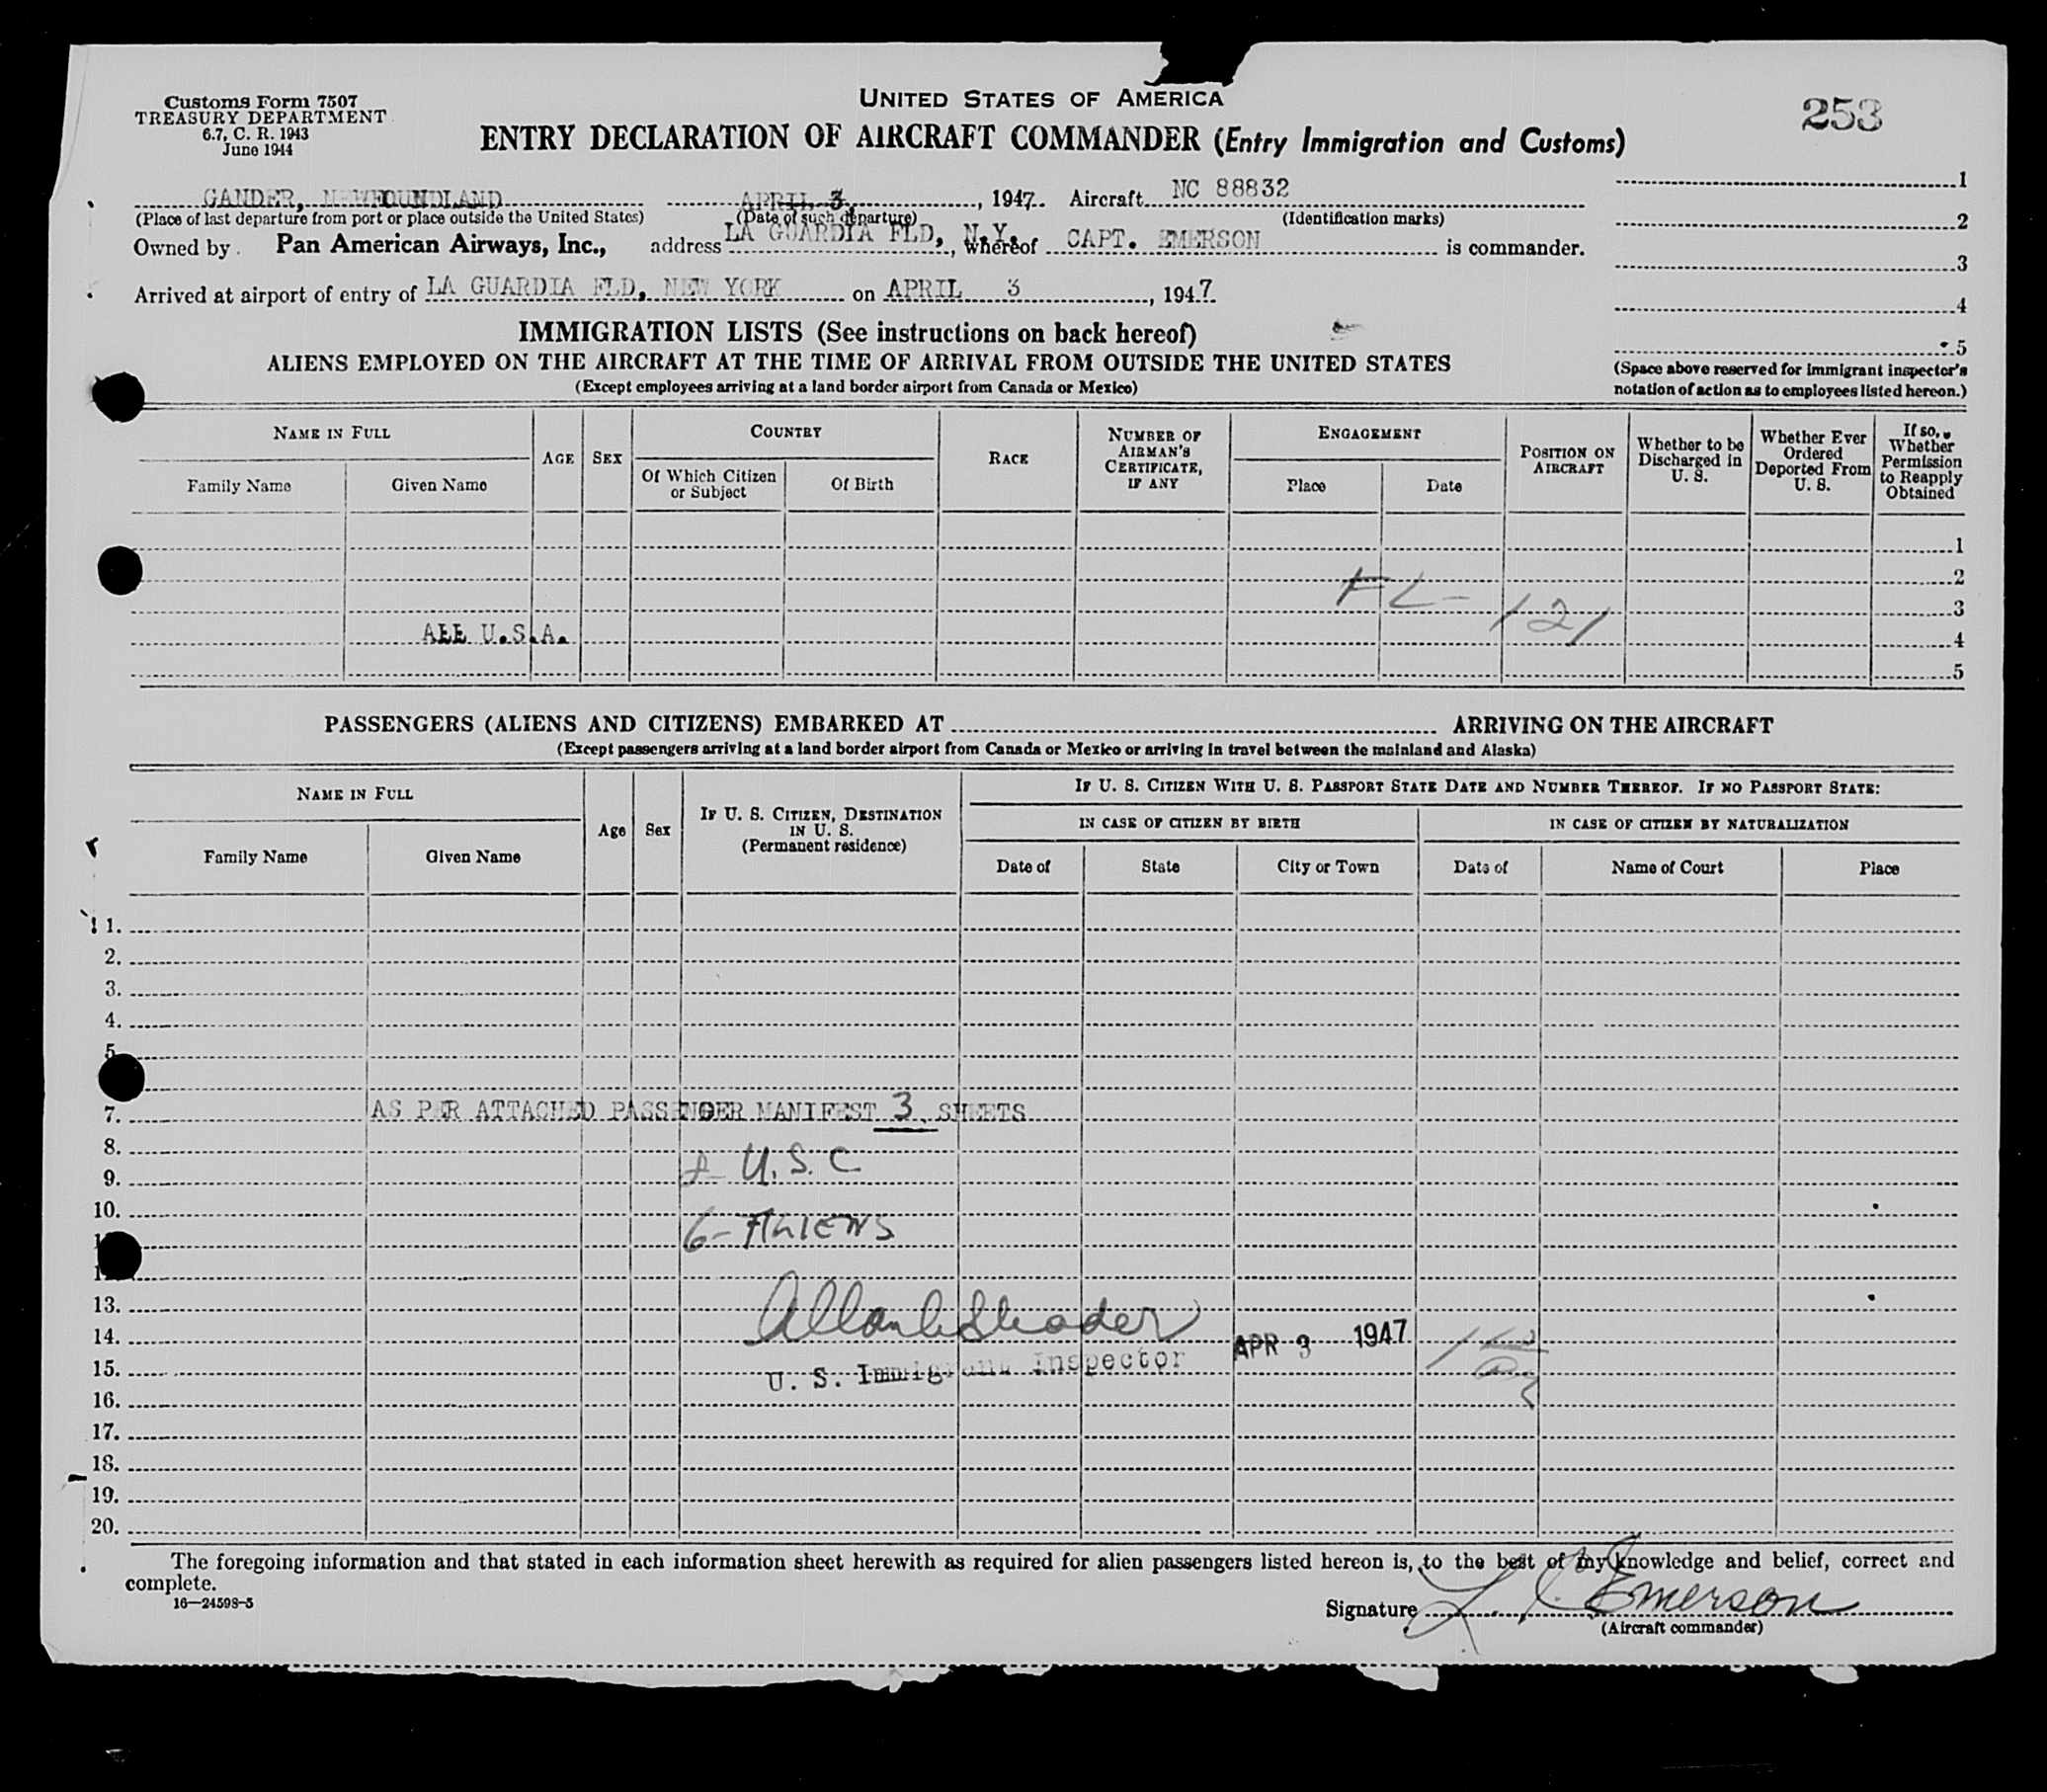 Customs Form 7507
TREASURY DEPARTMENT
6.7, C. R. 1943
June 1944
UNITED STATES OF AMERICA
253
ENTRY DECLARATION OF AIRCRAFT COMMANDER (Entry Immigration and Customs)
GANDER, NEWFOUNDLAND APRIL 3, 1947. Aircraft NC 88832
(Place of last departure from port or place outside the United States) (Date of such departure) (Identification marks)
Owned by Pan American Airways, Inc., address LA GUARDIA FLD, N.Y., whereof CAPT. EMERSON is commander.
Arrived at airport of entry of LA GUARDIA FLD, NEW YORK on APRIL 3, 1947.
1
2
3
4
5
(Space above reserved for immigrant inspector's
notation of action as to employees listed hereon.)
IMMIGRATION LISTS (See instructions on back hereof)
ALIENS EMPLOYED ON THE AIRCRAFT AT THE TIME OF ARRIVAL FROM OUTSIDE THE UNITED STATES
(Except employees arriving at a land border airport from Canada or Mexico)
NAME IN FULL
Family Name Given Name
AGE
SEX
COUNTRY
Of Which Citizen or Subject
Of Birth
RACE
NUMBER OF AIRMAN'S CERTIFICATE, IF ANY
ENGAGEMENT
Place Date
POSITION ON AIRCRAFT
Whether to be Discharged in U. S.
Whether Ever Ordered Deported From U. S.
If so, Whether Permission to Reapply Obtained
1
2
FL- 121
3
ALL U.S.A. 4
5
PASSENGERS (ALIENS AND CITIZENS) EMBARKED AT ARRIVING ON THE AIRCRAFT
(Except passengers arriving at a land border airport from Canada or Mexico or arriving in travel between the mainland and Alaska)
NAME IN FULL
Family Name Given Name
Age
Sex
IF U. S. CITIZEN, DESTINATION IN U. S.
(Permanent residence)
IF U. S. CITIZEN WITH U. S. PASSPORT STATE DATE AND NUMBER THEREOF. IF NO PASSPORT STATE:
IN CASE OF CITIZEN BY BIRTH
IN CASE OF CITIZEN BY NATURALIZATION
Date of State City or Town Date of Name of Court Place
1.
2.
3.
4.
5.
7. AS PER ATTACHED PASSENGER MANIFEST 3 SHEETS
8.
U.S.C
9.
10.
6- ALIENS
13.
14. APR 3 1947
15. U. S. Immigrant Inspector
16.
17.
18.
19.
20.
The foregoing information and that stated in each information sheet herewith as required for alien passengers listed hereon is, to the best of my knowledge and belief, correct and
complete.
16—24598-5
Signature L. C. Emerson
(Aircraft commander)